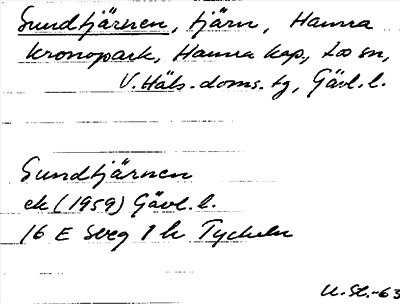 Sundtjärnen, tjärn, Hamra
kronopark, Hamra kap., Los sn,
V. Häls. doms. tg, Gävl. l.
Sundtjärnen
ek (1959) Gävl. l.
16 E Sveg 1 h Tyckeln
U. St. -63